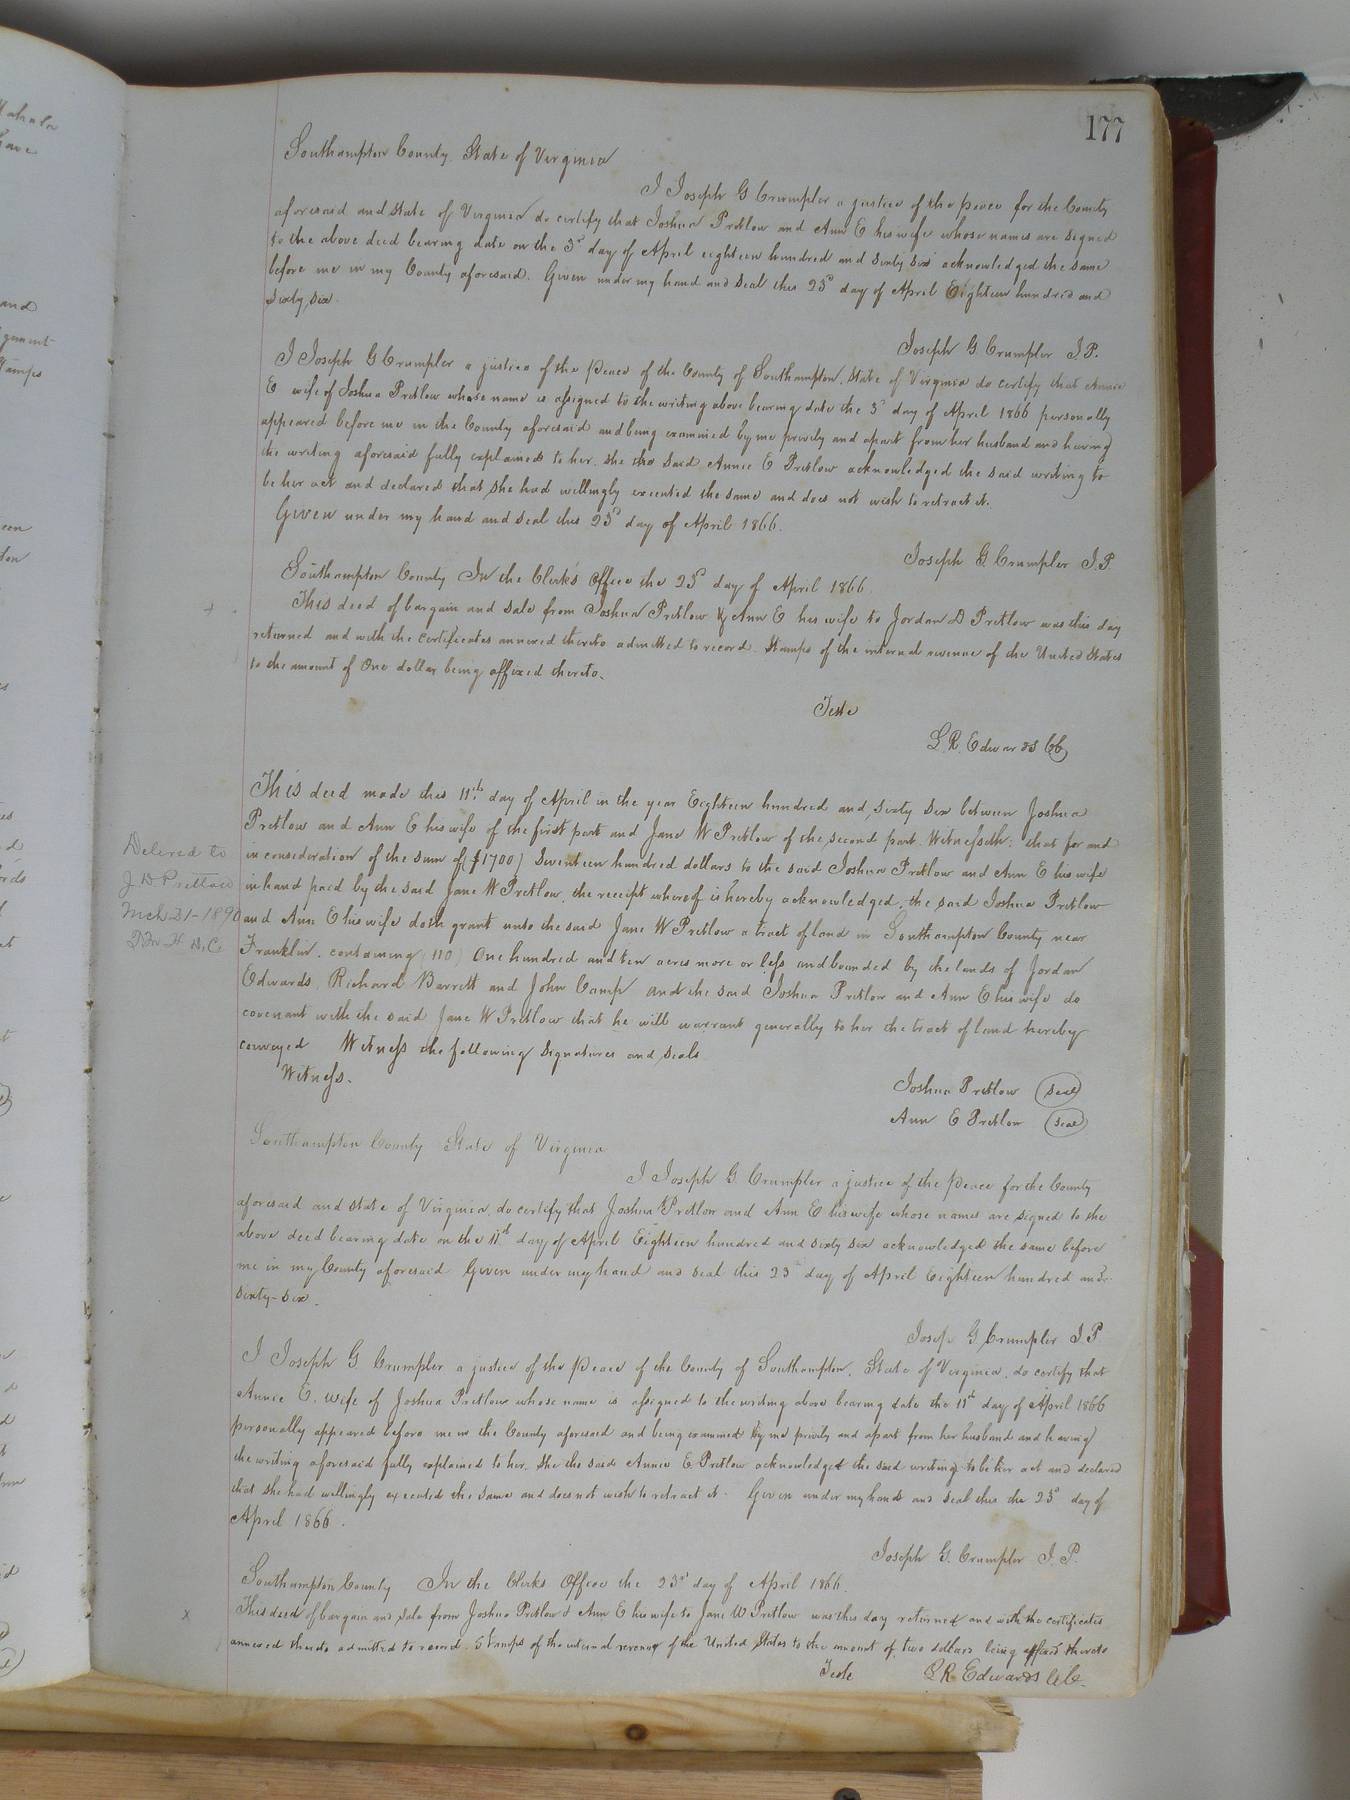 177
Southampton County State of Virginia
I Joseph G Crumpler a justice of the peace for the County
aforesaid and state of Virginia do certify that Joshua Pretlow and Ann E his wife whose names are signed
to the above deed bearing date on the 3d day of April eighteen hundred and sixty six acknowledged the same
before me in my County aforesaid. Given under my hand and seal this 23d day of April Eighteen hundred and
sixty six.
Joseph G Crumpler J.P.
I Joseph G Crumpler a justice of the Peace of the County of Southampton, State of Virginia do certify that Annie
E wife of Joshua Pretlow whose name is assigned to the writing above bearing date the 3d day of April 1866 personally
appeared before me in the County aforesaid and being examined by me privily and apart from her husband and having
the writing aforesaid fully explained to her. she the said Annie E Pretlow acknowledged the said writing to
be her act and declared that she had willingly executed the same and does not wish to retract it.
Given under my hand and seal this 23d day of April 1866.
Joseph G. Crumpler J.P.
Southampton County In the Clerk's Office the 23d day of April 1866.
This deed of bargain and sale from Joshua Pretlow & Ann E his wife to Jordan D Pretlow was this day
returned and with the certificates annexed thereto admitted to record. Stamps of the internal revenue of the United States
to the amount of One dollar being affixed thereto.
Teste
L. R. Edwards CC
This deed made this 11th day of April in the year Eighteen hundred and sixty six between Joshua
Pretlow and Ann E his wife of the first part and Jane W Pretlow of the second part. Witnesseth: that for and
in consideration of the sum of ($1700) Seventeen hundred dollars to the said Joshua Pretlow and Ann E his wife
in hand paid by the said Jane W Pretlow, the receipt whereof is hereby acknowledged, the said Joshua Pretlow
and Ann E his wife doth grant unto the said Jane W Pretlow a tract of land in Southampton County near
Franklin. containing (110) One hundred and ten acres more or less and bounded by the lands of Jordan
Edwards, Richard Barrett and John Camp and the said Joshua Pretlow and Ann E his wife do
covenant with the said Jane W Pretlow that he will warrant generally to her the tract of land hereby
conveyed Witness the following signatures and seals
Witness.
Joshua Pretlow (Seal)
Ann E Pretlow (Seal)
Delivered to
J D Pretlow
Mch 21-1890
Southampton County State of Virginia
I Joseph G. Crumpler a justice of the Peace for the County
aforesaid and state of Virginia, do certify that Joshua Pretlow and Ann E his wife whose names are signed to the
above deed bearing date on the 11th day of April Eighteen hundred and sixty six acknowledged the same before
me in my County aforesaid Given under my hand and seal this 23 day of April Eighteen hundred and
sixty-six.
Josep G. Crumpler J P
I Joseph G Crumpler a justice of the Peace of the County of Southampton, State of Virginia, do certify that
Annie E. wife of Joshua Pretlow whose name is assigned to the writing above bearing date the 11th day of April 1866
personally appeared before me in the County aforesaid and being examined by me privily and apart from her husband and having
the writing aforesaid fully explained to her. She the said Annie E Pretlow acknowledged the said writing to be her act and declared
that she had willingly executed the same and does not wish to retract it. Given under my hand and seal this the 23d day of
April 1866.
Joseph G. Crumpler J. P.
Southampton County In the Clerks Office the 23rd day of April 1866.
This deed of bargain and sale from Joshua Pretlow & Ann E his wife to Jane W Pretlow was this day returned and with the certificates
annexed thereto admitted to record. Stamps of the internal revenue of the United States to the amount of two dollars being affixed thereto
Teste L R Edwards CC.